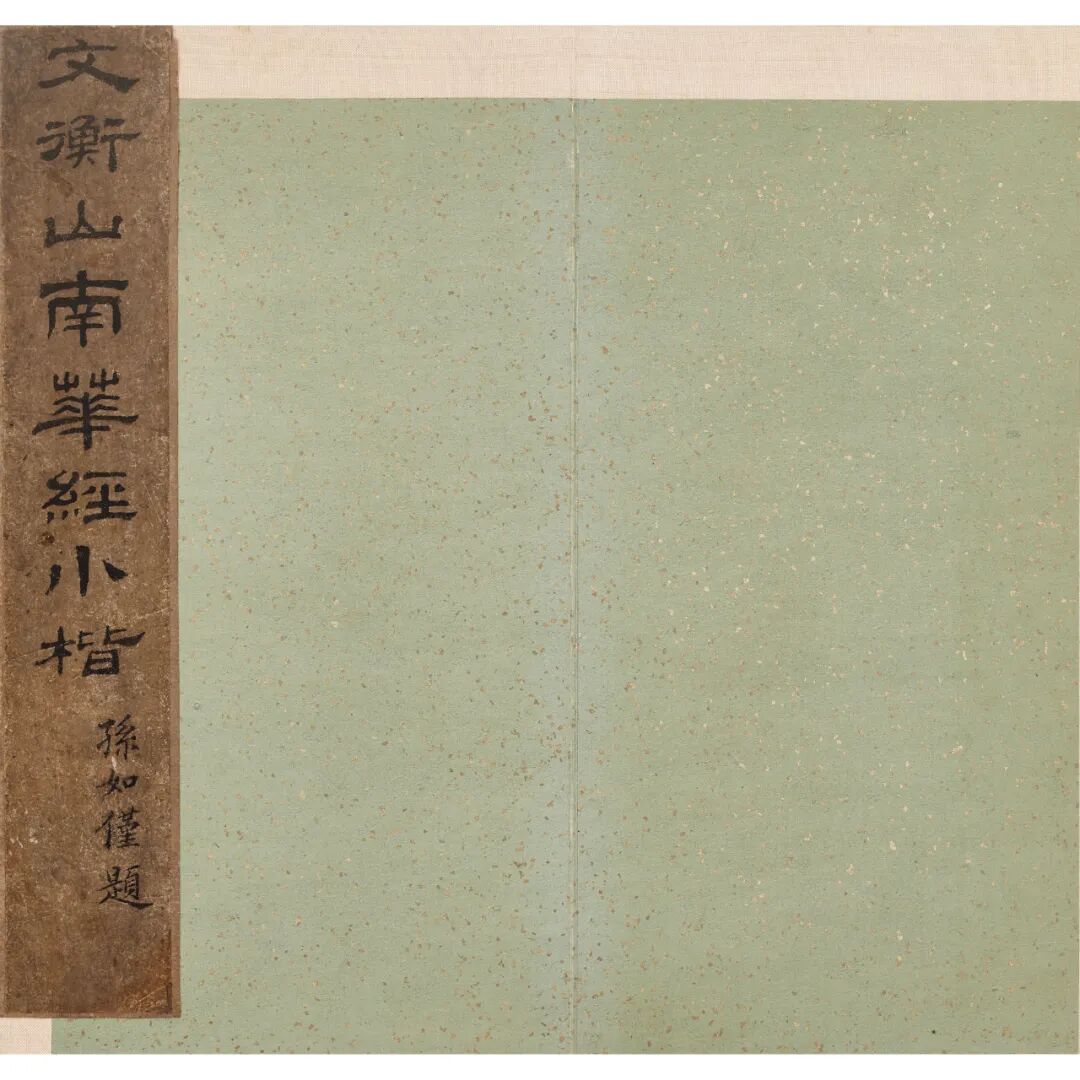 文衡山南華經小楷
孫如僅題